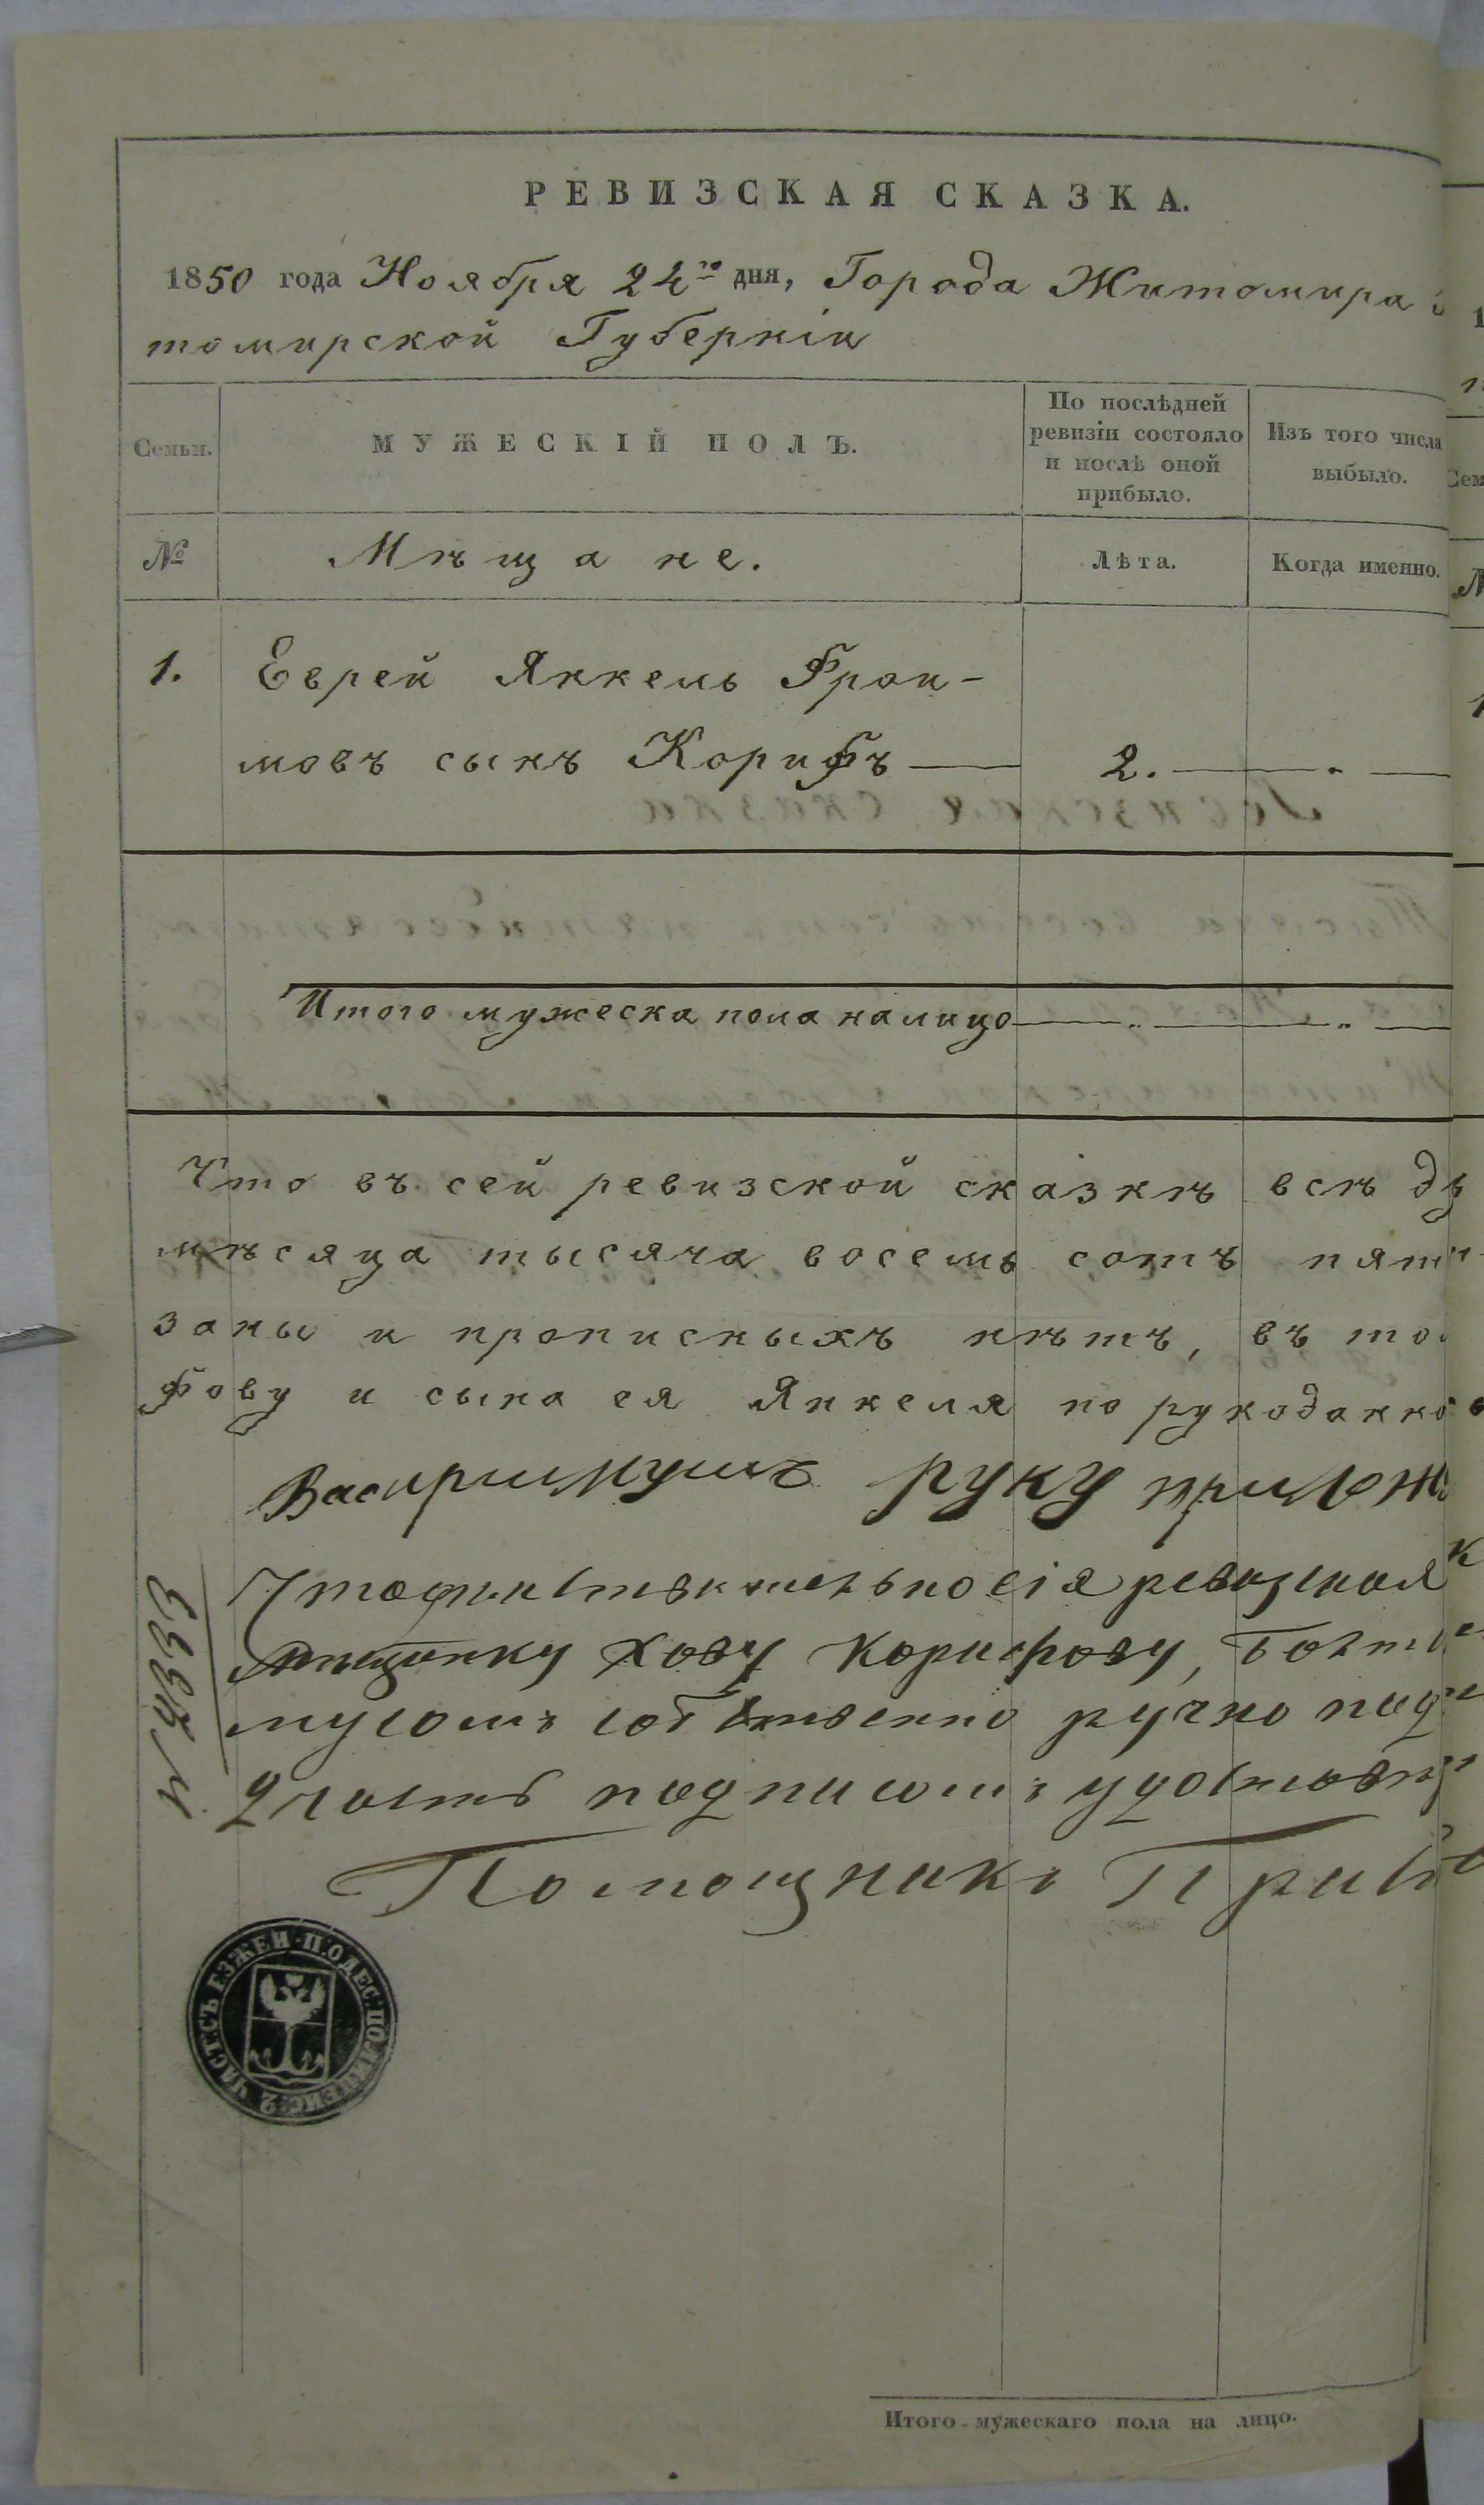 РЕВИЗСКАЯ СКАЗКА.
1850 года Ноября 24го дня, Города Житомира
томирской Губернiи
Семьи.
МУЖЕСКIЙ ПОЛЪ.
По послѣдней ревизiи состояло и послѣ оной прибыло.
Изъ того числа выбыло.
№
Мѣщане.
Лѣта.
Когда именно.
1. Еврей Янкель Фрои-
мовъ сынъ Корифъ — 2. — . —
Итого мужеска пола налицо — „ — „ —
Что въ сей ревизской сказкѣ всѣ
мѣсяца тысяча восемь сотъ пяти
заны и прописныхъ нѣтъ, въ то
фову и сына ея Янкеля по рукоданно
руку прилож
сiя ревизская
мѣщанку Хову Корифову,
ручно под
2 часть подписомъ удостовѣр
Помощникъ Прис
№ 2833
2 ЧАСТ СЪЕЗЖЕЙ ПОДЕС: ПОЛИЦЕЙС:
Итого мужескаго пола на лицо.